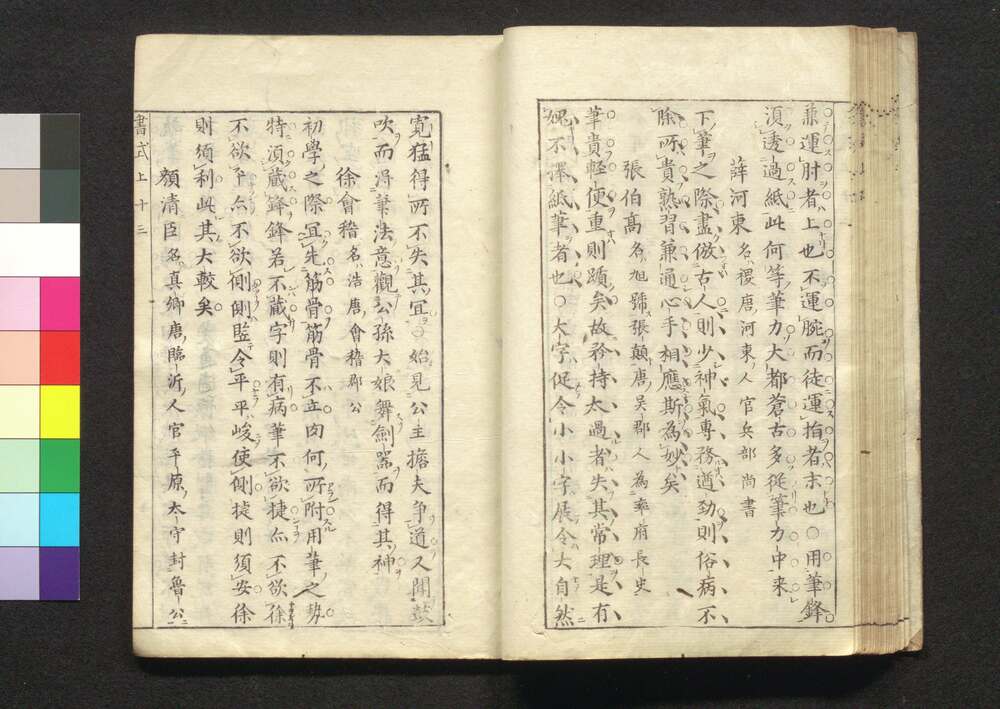 兼運肘者上也不運腕而徒運指者末也○用筆鋒
須透過紙此何等筆力大都蒼古多從筆力中来
薛河東名稷唐河東人官兵部尚書
下筆之際盡倣古人則少神氣專務遒勁則俗病不
除所貴熟習兼通心手相應斯為妙矣
張伯高名旭號張顛唐吳郡人為率府長史
筆貴輕便重則躓矣故矜持太過者失其常理是有
不擇紙筆者也○大字促令小小字展令大自然
寛猛得所不失其冝○始見公主擔夫争道又聞鼓
吹而得筆法意觀公孫大娘舞劍器而得其神
徐會稽名浩唐會稽郡公
初學之際冝先筋骨筋骨不立肉何所附用筆之勢
特須蔵鋒鋒若不蔵字則有病筆不欲捷亦不欲徐
不欲平亦不欲側側竪令平平峻使側捷則須安徐
則須利此其大較矣
顔清臣名真卿唐臨沂人官平原太守封魯公
書式上十三